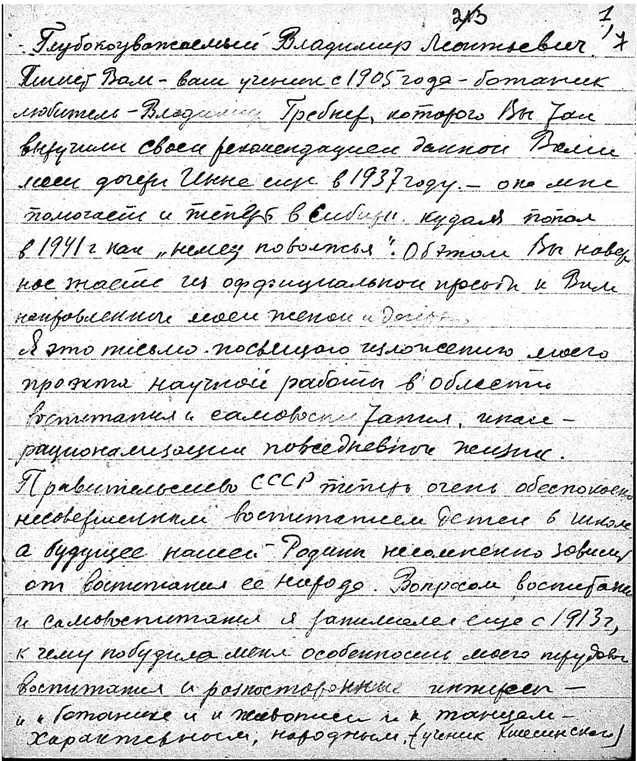 2/3 1/7
Глубокоуважаемый Владимир Леонтьевич!
Пишет Вам - ваш ученик с 1905 года - ботаник
любитель - Владимир Гребнер, которого Вы так
выручили своей рекомендацией данной Вами
моей дочери Инне еще в 1937 году. - она мне
помогает и теперь в Сибири. куда я попал
в 1941 г как „немец поволжья". Об этом Вы навер
ное знаете из оффициальной просьбы к Вам
направленные моей женой и дочерью.
Я это письмо посвящаю изложению моего
проэкта научной работы в области
воспитания и самовоспитания, или -
рационализации повседневной жизни.
Правительство СССР теперь очень обеспокоено
несовершенным воспитанием детей в школе
а будущее нашей Родины несомненно зависит
от воспитания ее народа. Вопросом воспитания
и самовоспитания я занимался еще с 1913 г,
к чему побудила меня особенность моего трудов
воспитания и разносторонние интересы -
и к ботанике и к живописи и к танцам -
характерным, народным, (ученик Кшесинского)